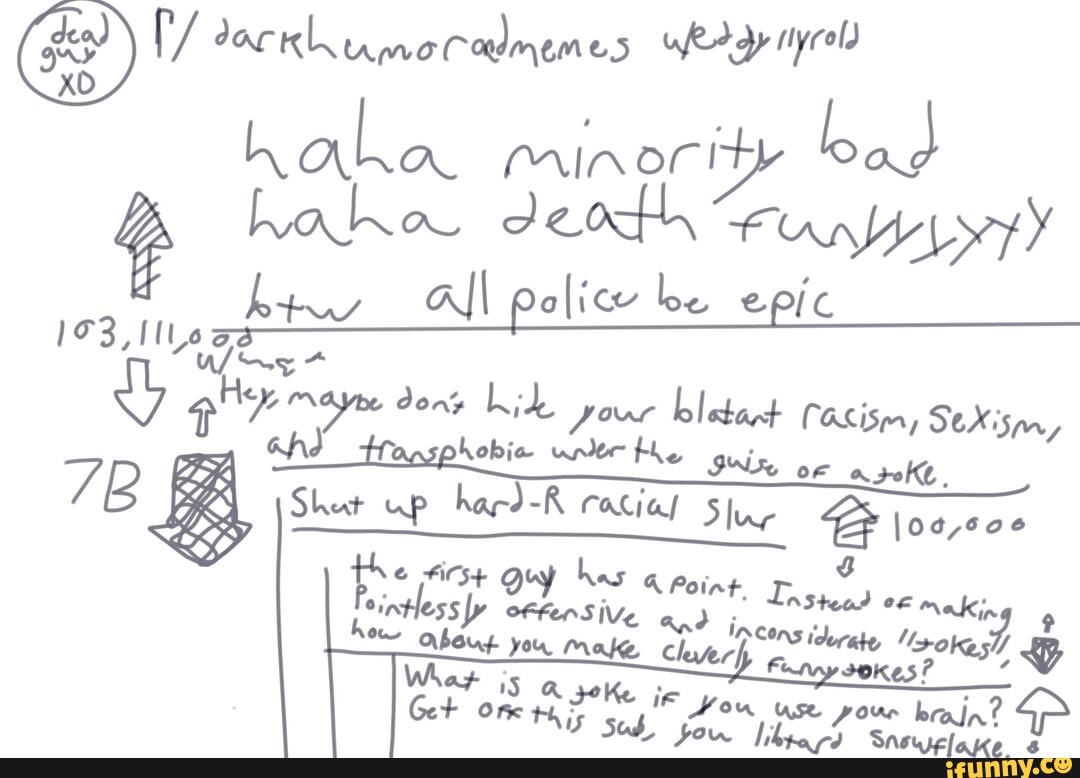 dead
guy
XD
r/darkhumorandmemes u/edgyllyrold
haha minority bad
haha death funyyyyyy
btw all police be epic
103,111,000
Hey, maybe don't hide your blatant racism, sexism,
and transphobia under the guise of a joke.
7B
Shut up hard-R racial slur
100,000
the first guy has a point. Instead of making
Pointlessly offensive and inconsiderate "jokes",
how about you make cleverly funny jokes?
What is a joke if you use your brain?
Get off this sub, you libtard snowflake.
ifunny.co